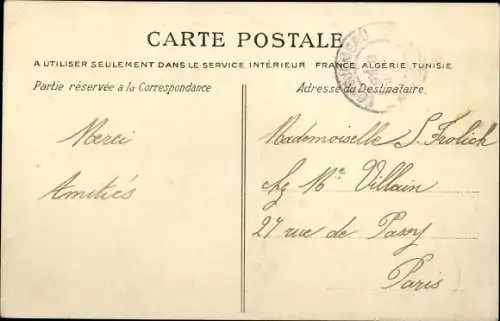 CARTE POSTALE
A UTILISER SEULEMENT DANS LE SERVICE INTÉRIEUR FRANCE, ALGÉRIE, TUNISIE
Partie réservée a la Correspondance
Adresse du Destinataire.
Merci
Amitiés
Mademoiselle S. Frolich
chz Me Villain
27 rue de Passy
Paris